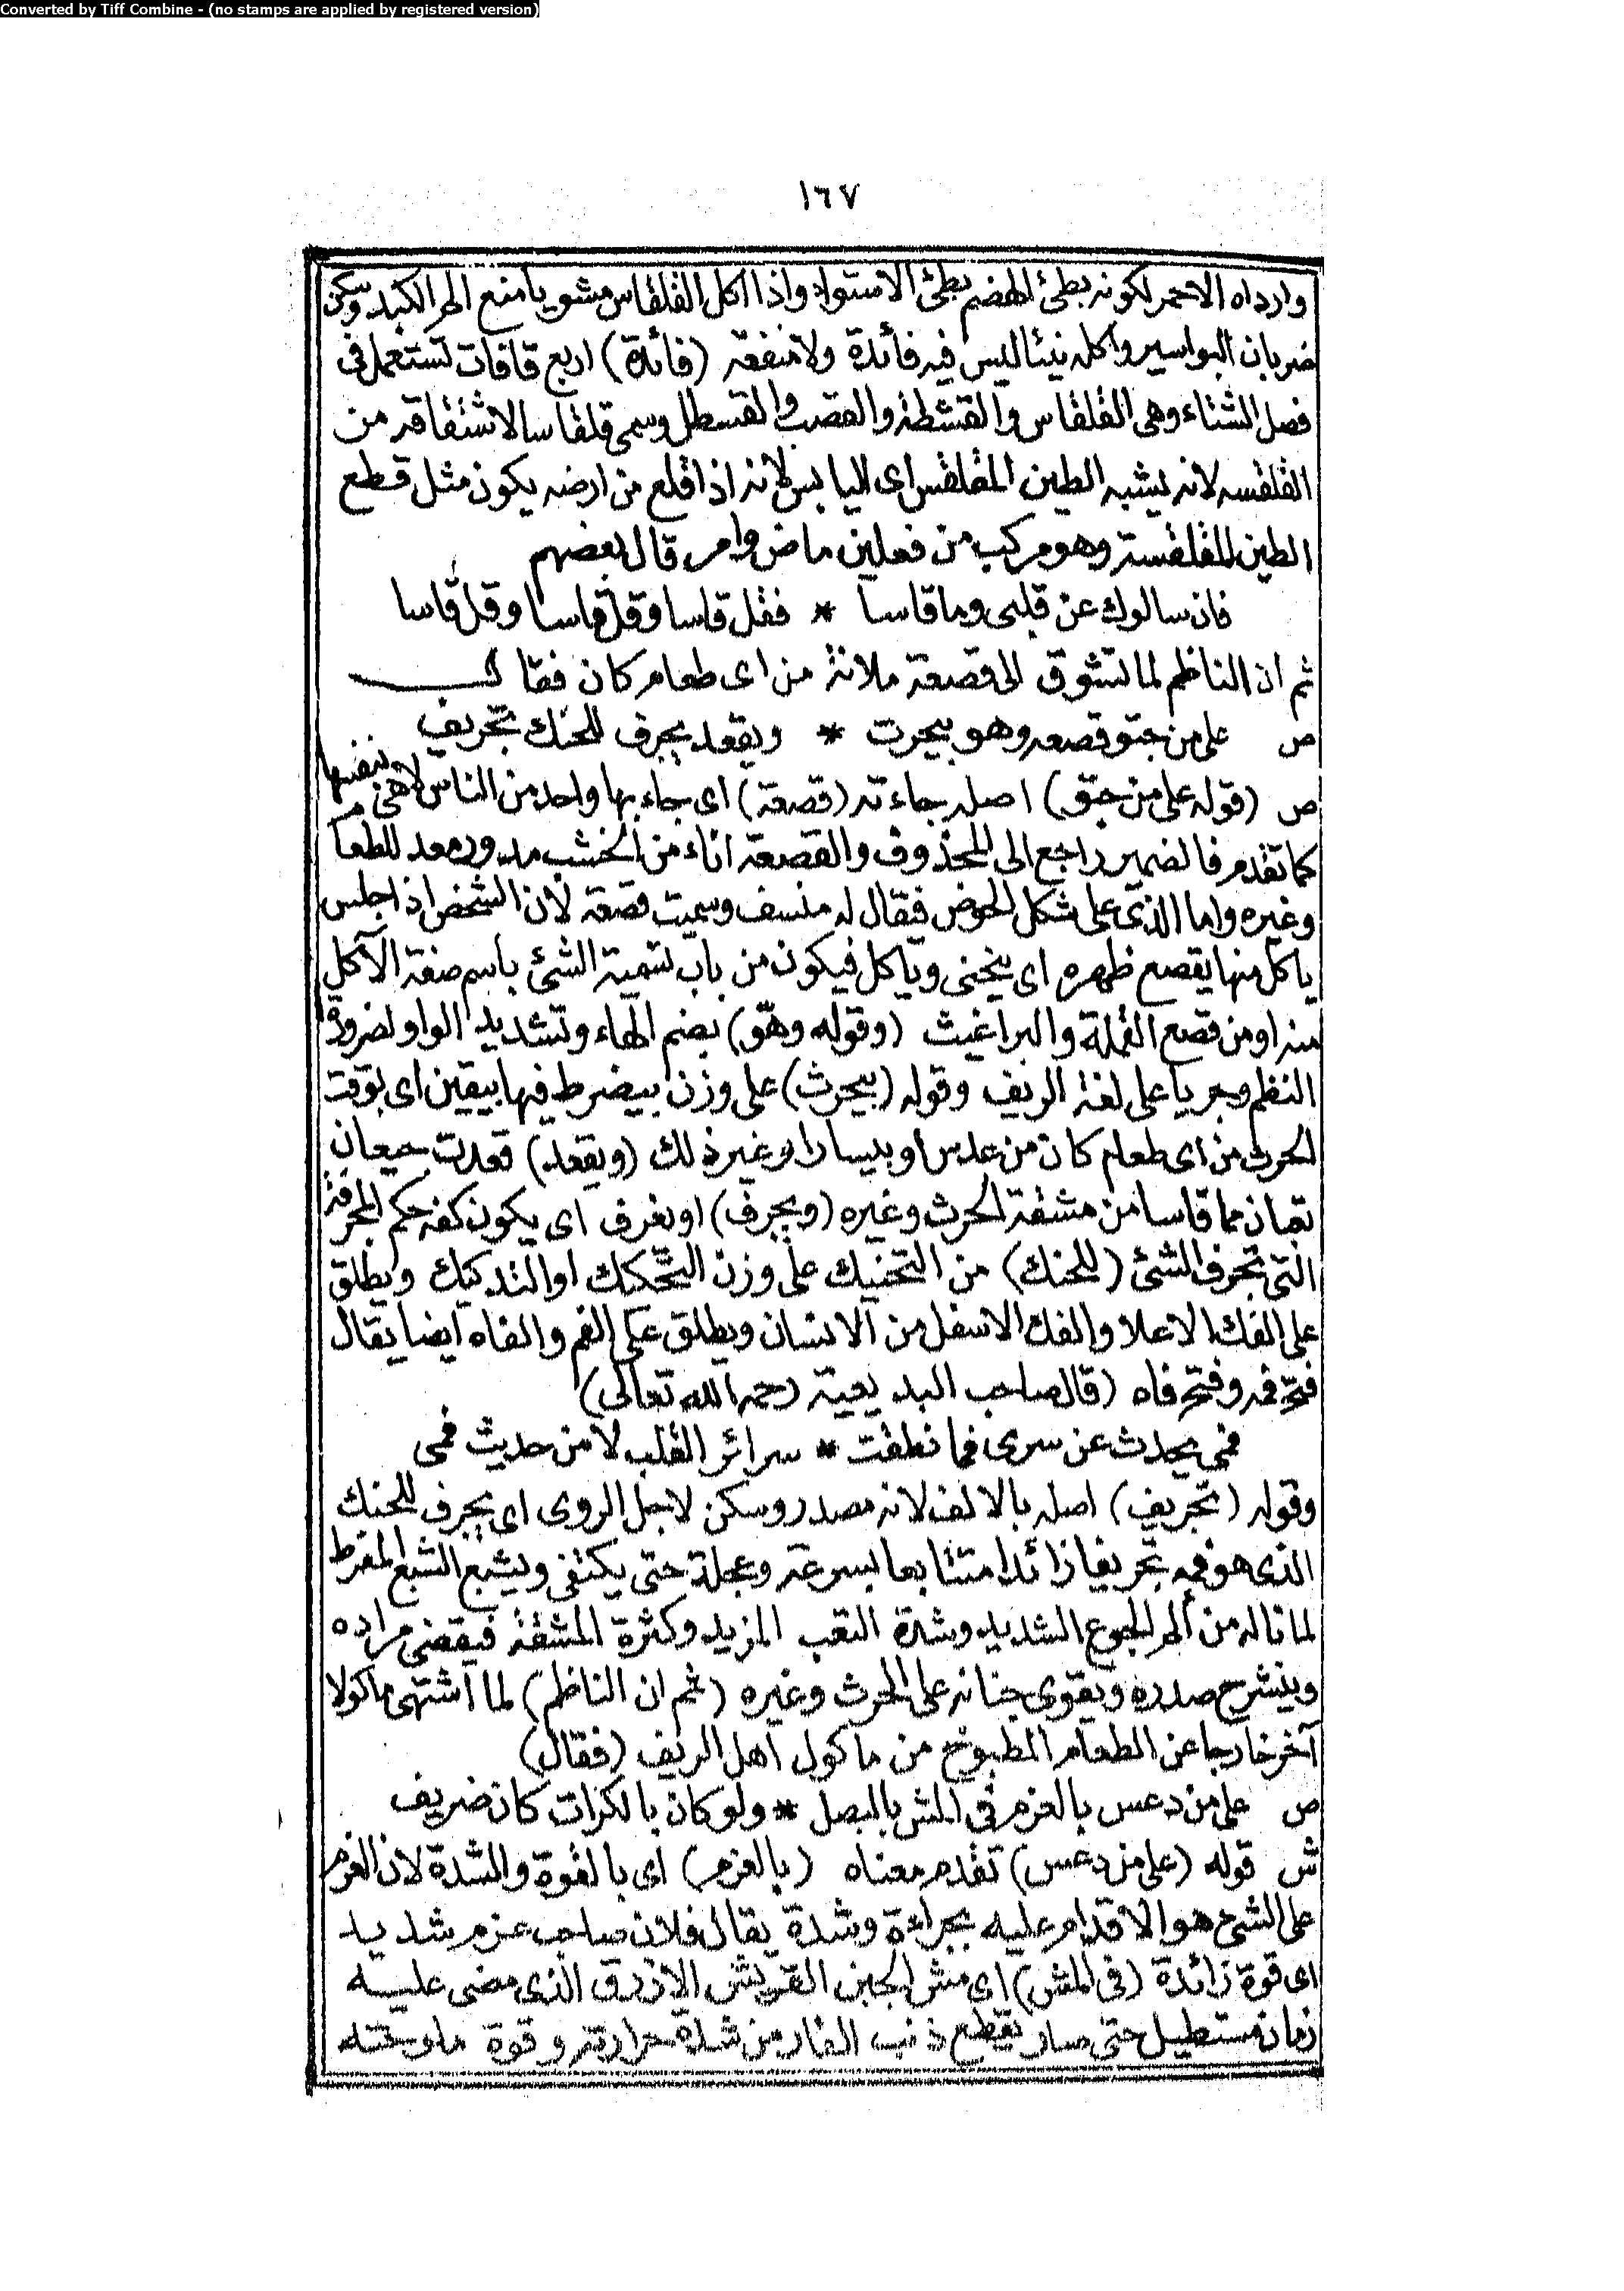 Converted by Tiff Combine - (no stamps are applied by registered version)
١٦٧
وارداه الاحمر لكونه بطئ الهضم بطئ الاستواء واذا اكل القلقاس مشويا منع الم الكبد وسكن
ضربان البواسير واكله نيئا ليس فيه فائدة ولا منفعة (فائدة) اربع قافات تستعمل فى
فصل الشتاء وهى القلقاس والقشطة والقصب والقسطل وسمى قلقاسا لاشتقاقه من
القلقسه لانه يشبه الطين المقلقس اى اليابس لانه اذا قلع من ارضه يكون مثل قطع
الطين المقلقسة وهو مركب من فعلين ماض وامر قال بعضهم
فان سالوك عن قلبى وما قاسا * فقل قاسا وقل قاسا وقل قاسا
ثم ان الناظم لما تشوق الى قصعة ملانة من اى طعام كان فقال
ص على من جتو قصعه وهو بيحرت * ويقعد يجرف للحنك تجريف
ص (قوله على من جتو) اصله جاءته (قصعة) اى جاء بها واحد من الناس لا هى بنفسها
كما تقدم فالضمير راجع الى المحذوف والقصعة اناء من الخشب مدور معد للطعا
وغيره واما الذى على شكل الحوض فيقال له منسف وسميت قصعة لان الشخص اذا جلس
ياكل منها يقصع ظهره اى ينحنى وياكل فيكون من باب تسمية الشئ باسم صفة الآكل
منه او من قصع القملة والبراغيث (وقوله وهوّ) بضم الهاء وتشديد الواو لضرورة
النظم وجريا على لغة الريف وقوله (بيحرث) على وزن بيضرط فيها بيقين اى بوقت
الحرث من اى طعام كان من عدس او بيسار او غير ذلك (ويقعد) قعدت جيعان
تعبان مما قاسا من مشقة الحرث وغيره (ويجرف) او يغرف اى يكون كفه حكم المجرفة
التى تجرف الشئ (للحنك) من التحنيك على وزن التحكيك او التدكيك ويطلق
على الفك الاعلا والفك الاسفل من الانسان ويطلق على الفم والفاه ايضا يقال
فتح فمه وفتح فاه (قال صاحب البديعية رحمه الله تعالى)
فمى يحدث عن سرى فما نطقت * سرائر القلب الا من حديث فمى
وقوله (تجريف) اصله بالالف لانه مصدر وسكن لاجل الروى اى يجرف للحنك
الذى هو فمه تجريفا زائدا متتابعا بسرعة وعجلة حتى يكتفى ويشبع الشبع المفرط
لما ناله من الم الجوع الشديد وشدة التعب المزيد وكثرة المشقة فيقضى مراده
وينشرح صدره ويقوى جنانه على الحرث وغيره (ثم ان الناظم) لما اشتهى ماكولا
آخر خارجا عن الطعام المطبوخ من ماكول اهل الريف (فقال)
ص على من دعس بالعزم فى المش بالبصل * ولو كان بالكرات كان ضريف
ش قوله (على من دعس) تقدم معناه (بالعزم) اى بالقوة والشدة لان العزم
على الشئ هو الاقدام عليه بجراءة وشدة يقال فلان صاحب عزم شديد
اى قوة زائدة (فى المش) اى مش الجبن القريش الازرق الذى مضى عليه
زمان مستطيل حتى صار يقطع ذنب الفار من شدة حرارته وقوة ملوحته